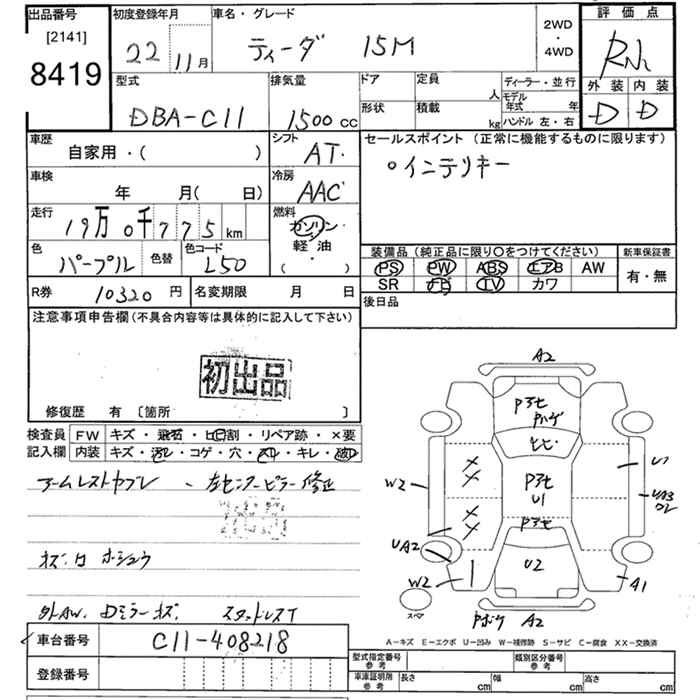 出品番号
[2141]
8419
初度登録年月
22 11月
車名・グレード
ティーダ 15M
2WD
・
4WD
評価点
外装 内装
D D
型式
DBA-C11
排気量
1500 CC
ドア
形状
定員
人
積載
kg
ディーラー・並行
モデル
年式 年
ハンドル 左・右
車歴
自家用・( )
シフト
AT
セールスポイント (正常に機能するものに限ります)
○インテリキー
車検
年 月( 日)
冷房
AAC
走行
19万0千775km
燃料
ガソリン・
軽油・
( )
色
パープル
色替
色コード
L50
装備品 (純正品に限り○をつけてください)
PS PW ABS エアB AW
SR TV カワ
新車保証書
有・無
R券
10320 円
名変期限 月 日
後日品
注意事項申告欄 (不具合内容等は具体的に記入して下さい)
初出品
修復歴 有 [箇所 ]
検査員
記入欄
FW キズ・飛石・ヒビ割・リペア跡・×要
内装 キズ・汚レ・コゲ・穴・スレ・キレ・
アームレストヤブレ - 左センターピラー修正
キズ・凹 ホシュウ
外AW. Dミラーキズ. スタッドレスT
車台番号
C11-408218
登録番号
A2
U1
U2
W2
UA2
W2
UA3
A1
A2
スペア
A－キズ E－エクボ U－凹み W－補修跡 S－サビ C－腐食 XX－交換済
型式指定番号
参考
類別区分番号
参考
車庫証明所
参考
長さ cm
幅 cm
高さ cm